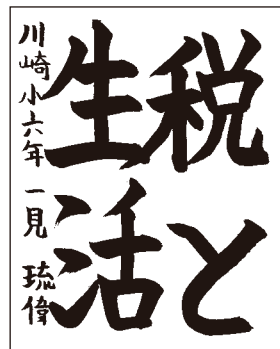 税と
生活
川崎小六年 一見 琉偉